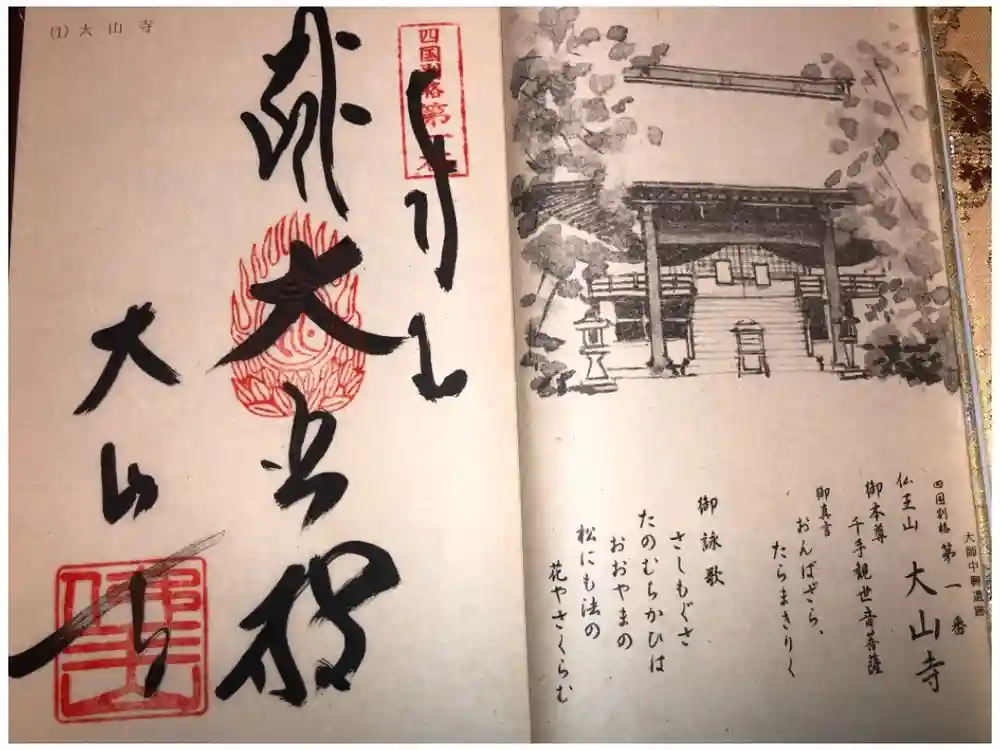 大師中興遺跡
四国別格 第一番
仏王山 大山寺
御本尊
千手観世音菩薩
御真言
おんばざら、
たらまきりく
御詠歌
さしもぐさ
たのむちかひは
おおやまの
松にも法の
花やさくらむ
四国別格第一番
大悲殿
大山寺
(1) 大山寺